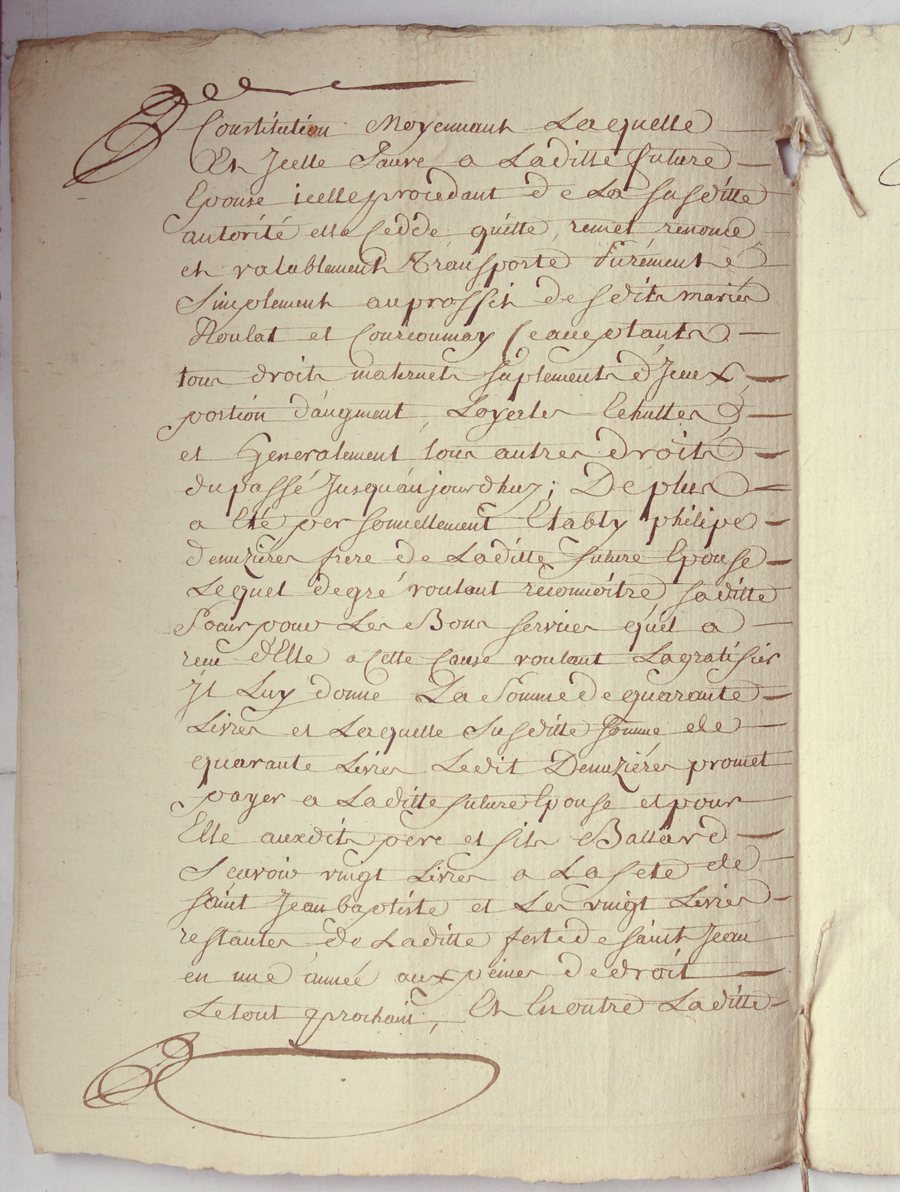 Constitution Moyennant Laquelle
Et Jcelle Faure a Laditte future
Epouse icelle procedant de La susditte
autorité elle Cedde quitte, remet renonce
et valablement Transporte Purement é
Simplement au proffit desdits mariés
Roulat et Courcoumay se acceptants
tous droits maternels suplements d'Jceux
portion d'augment, Loyertes Echuttes &
et Generalement tous autres droits
du passé Jusqu'aujourdhuz; De plus
a Eté personnellement Etably philipe
Demuziéres frere de Laditte future Epouse
Lequel degré voulant reconnoitre saditte
Soeur pour Les Bons services qu'il a
recu d'Elle a Cette Cause voulant La gratifier
Jl Luy donne La Somme de quarante
Livres et Laquelle Susditte somme de
quarante Livres Ledit Demuziéres promet
payer a Laditte future Epouse et pour
Elle auxdits pere et fils Ballard
Scavoir vingt Livres a La fete de
saint Jean baptiste et Les vingt Livres
restantes de Laditte feste de saint Jean
en une année aux peines de droit
Le tout prochain, Et En outre Laditte